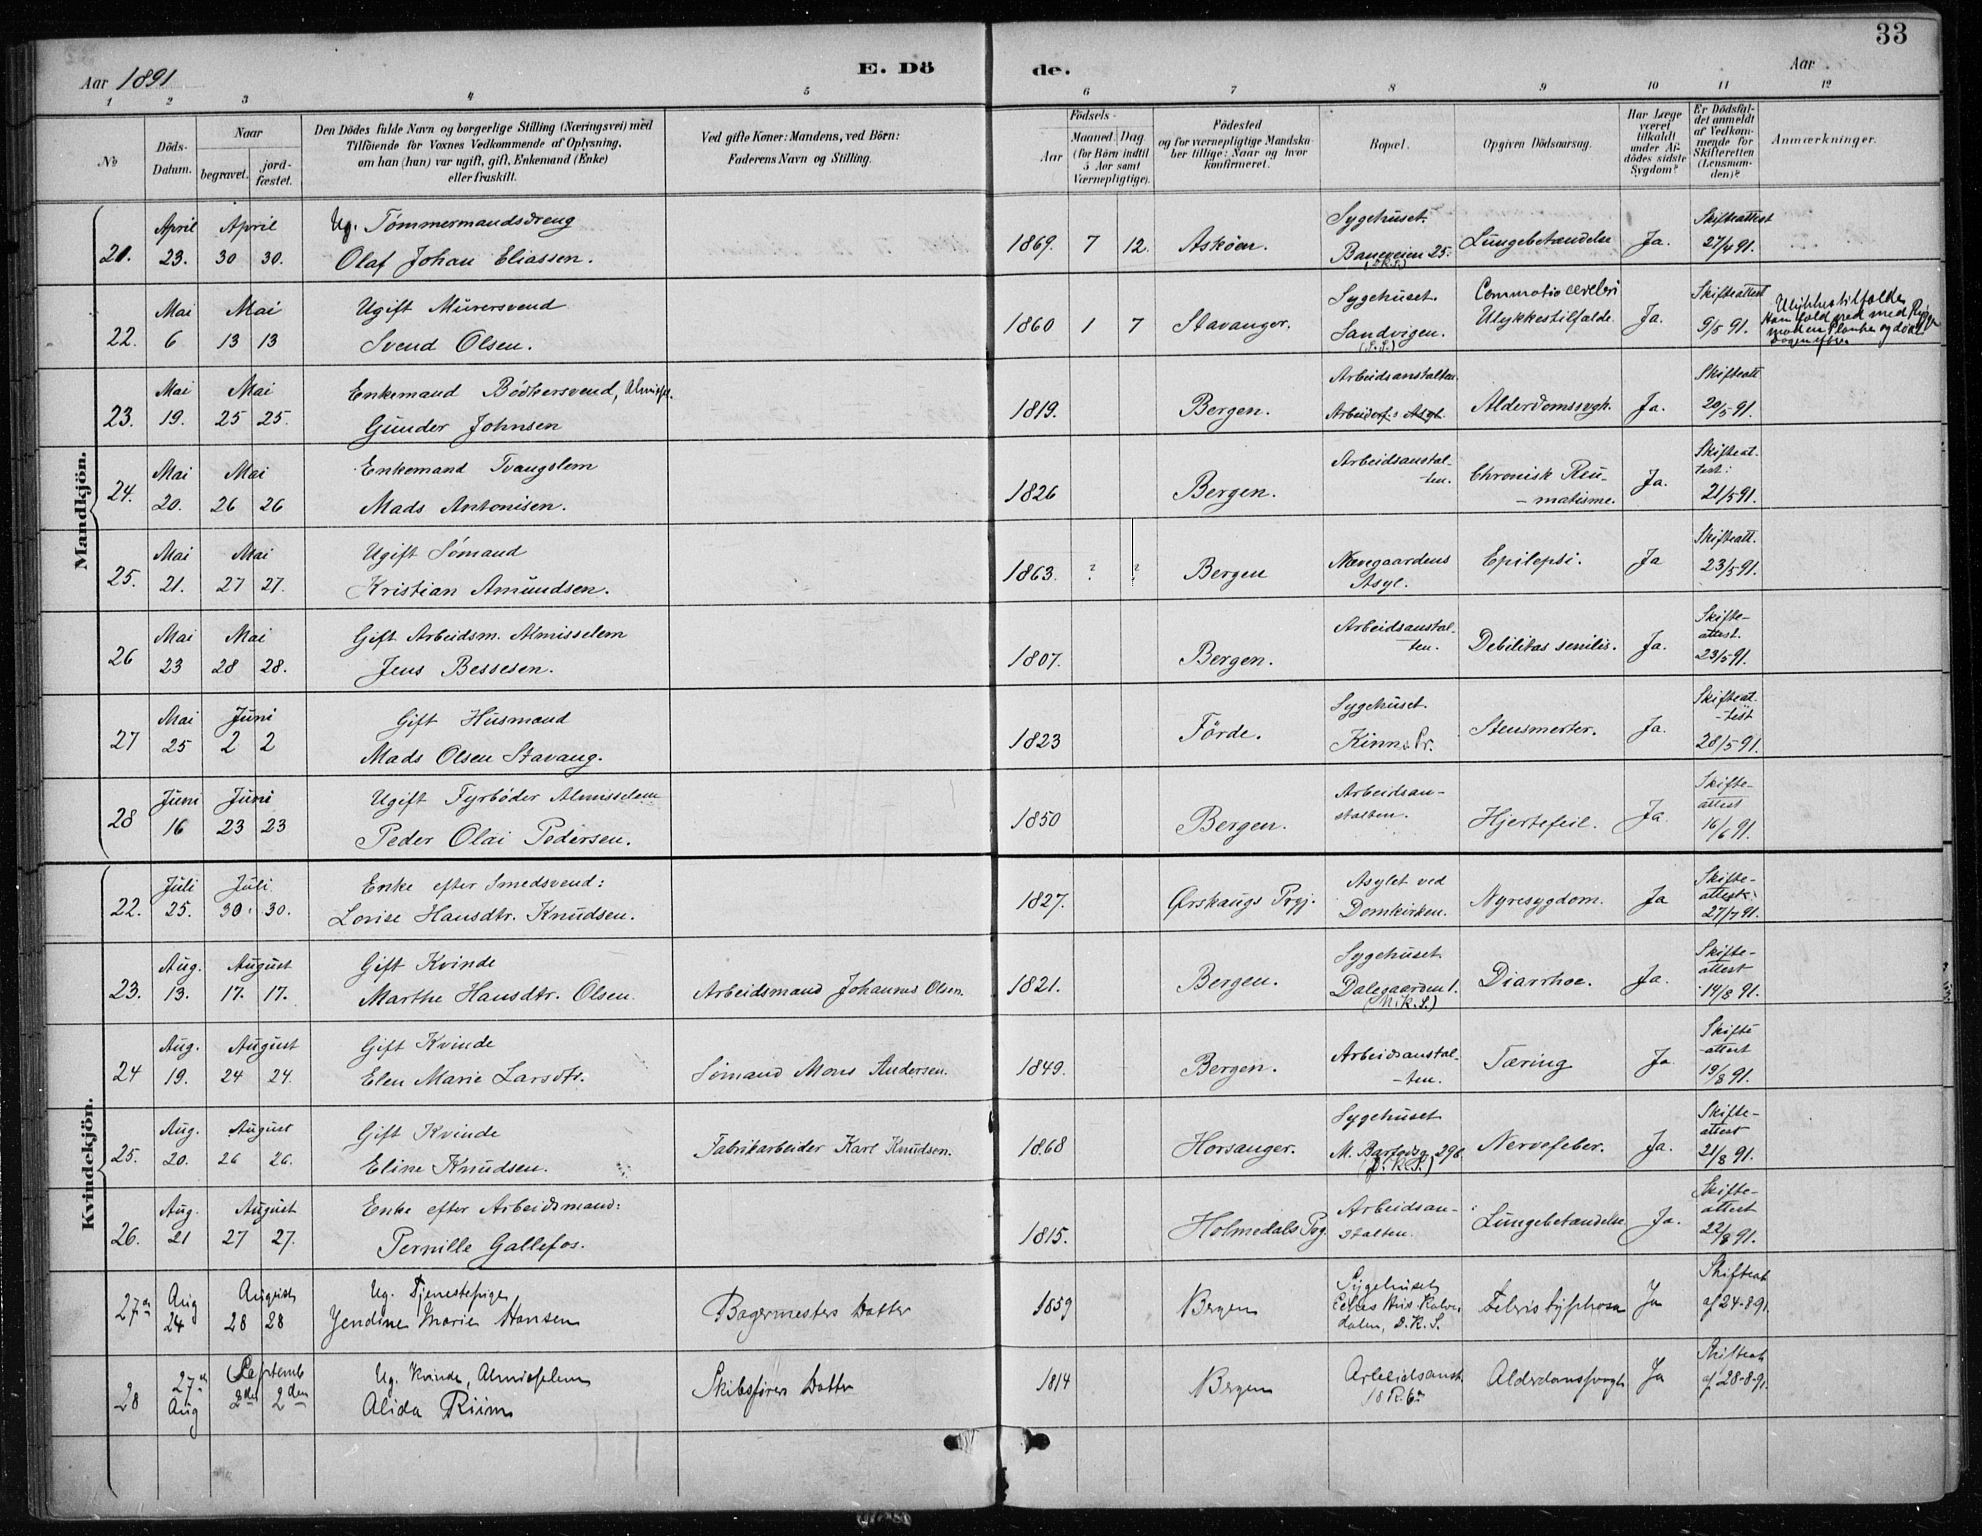 33
Aar 1891
E. Dö de.
Aar
1 2 3 4 5 6 7 8 9 10 11 12
No
Döds-Datum.
Naar begravet. jordfæstet.
Den Dödes fulde Navn og borgerlige Stilling (Næringsvei) med Tilföiende for Voxnes Vedkommende af Oplysning, om han (hun) var ugift, gift, Enkemand (Enke) eller fraskilt.
Ved gifte Koner: Mandens, ved Börn: Faderens Navn og Stilling.
Födsels- Aar Maaned. Dag. (for Börn indtil 5 Aar samt Værnepligtige).
Födested og for værnepligtige Mandskaber tillige: Naar og hvor konfirmeret.
Bopæl.
Opgiven Dödsaarsag.
Har Læge været tilkaldt under Afdödes sidste Sygdom?
Er Dödsfaldet anmeldt af Vedkommende for Skifteretten (Lensmanden)?
Anmærkninger.
Mandkjön.
April April Ug. Tömmermandsdreng Sygehuset. Skifteattest
21. 23. 30 30. Olaf Johan Eliassen. 1869. 7 12. Asköen. Baneveien 25. Lungebetændelse Ja. 27/4 91.
Mai Mai Ugift Murersvend Sygehuset. Commotio cerebri Skifteattest
22. 6 13 13 Svend Olsen. 1860 1 7 Stavanger. Sandvigen. (S.S.) Ulykkestilfælde. Ja. 9/5 91. Ulykkestilfælde Han fald ned med Ryggen mod en Planke og döde Dagen efter
Mai Mai Enkemand Bödkersvend, Almisl. Arbeidsanstalten. Skifteatt
23. 19. 25 25. Gunder Johnsen 1819. Bergen. Arbeiderf.s Asyl. Alderdomssvgh. Ja. 20/5 91.
Mai Mai Enkemand Tvangslem Arbeidsanstal- Chronisk Reu- Skifteattest:
24. 20. 26 26 Mads Antonisen. 1826 Bergen. ten. matisme. Ja. 21/5 91.
Mai Mai Ugift Sömand Skifteatt.
25. 21. 27 27. Kristian Amundsen. 1863. ? ? Bergen Neengaardens Asyl. Epilepsi. Ja 23/5 91.
Mai Mai Gift Arbeidsm. Almisselem Arbeidsanstal- Skifte-attest.
26 23 28 28. Jens Bessesen. 1807. Bergen. ten. Debilitas senilis. Ja. 23/5 91.
Mai Juni Gift Husmand Sygehuset. Skifteattest
27 25 2 2 Mads Olsen Stavang. 1823 Förde. Kinn Pr. Stensmerter. Ja. 28/5 91.
Juni Juni Ugift Fyrböder Almisselem Arbeidsan- Skifte-attest
28 16 23 23 Peder Olai Pedersen. 1850 Bergen. stalten. Hjertefeil. Ja. 16/6 91.
Kvindekjön.
Juli Juli Enke efter Smedsvend: Asylet ved Skifte-attest.
22. 25. 30. 30. Lovise Hansdtr. Knudsen. 1827. Ørskaugs Prgj. Domkirken. Nyresygdom. Ja 27/7 91.
Aug. August Gift Kvinde Sygehuset Skifte-attest
23. 13. 17. 17. Marthe Hansdtr. Olsen. Arbeidsmand Johannes Olsen. 1821. Bergen. Dalegaarden 1. (Nik.S.) Diarrhoe. Ja. 14/8 91.
Aug. August Gift Kvinde Skifte-attest
24 19. 24 24. Elen Marie Larsdtr. Sömand Mons Andersen. 1849. Bergen. Arbeidsanstal-ten. Tæring Ja 19/8 91.
Aug. August Gift Kvinde Sygehuset Skifte-attest
25. 20. 26 26. Eline Knudsen. Fabrikarbeider Karl Knudsen. 1868 Horsanger. (D.K.S.) Nervefeber. Ja. 21/8 91.
Aug. August Enke efter Arbeidsmand: Arbeidsan- Skifte-attest
26. 21 27 27. Pernille Gallefos. 1815. Holmedals Prg. stalten. Lungebetændelse Ja. 22/8 91.
Aug August Ug. Tjenestepige Sygehuset Skifteat
27de 24 28 28 Jendine Marie Hansen Bagermesters Datter 1859 Bergen Kalvedalen, D.K.S. Febris typhosa Ja af 24-8-91
27de Septemb Ug. Kvinde, Almisselem Skifteat
28 Aug 2den 2den Alida Riim Skibsförer Datter 1814 Bergen Arbeidsanst. Alderdomssvagh Ja af 28-8-91.